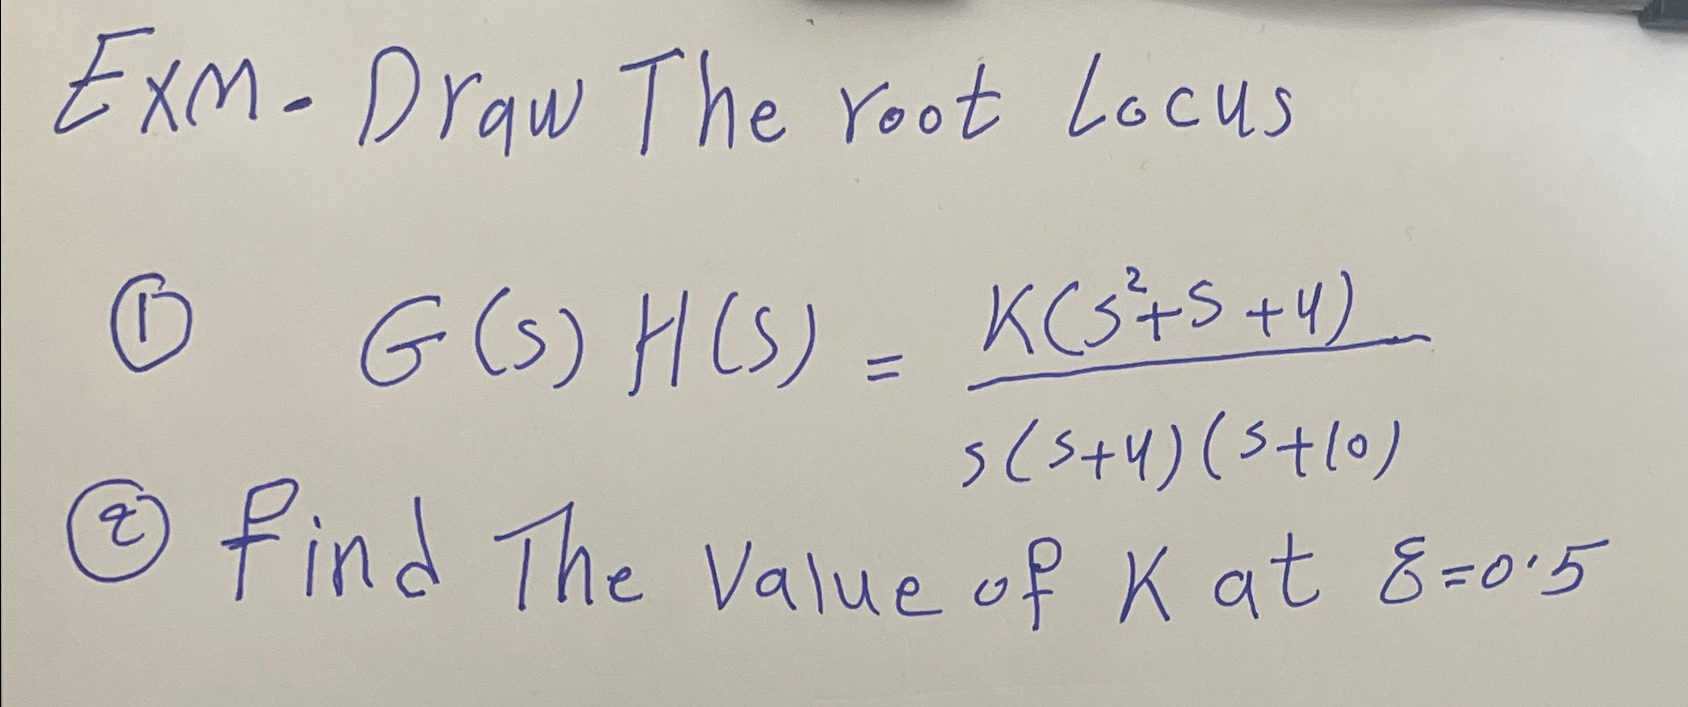 EXM. Draw The root Locus
① G(s) H(s) = K(s²+s+4)
s(s+4)(s+10)
② find The value of K at ξ=0.5